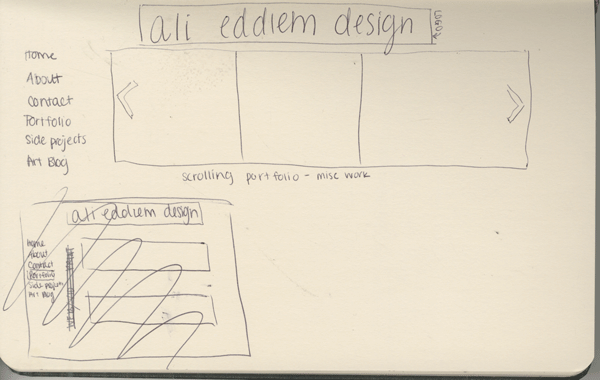 ali eddiem design
Logo
Home
About
Contact
Portfolio
Side projects
Art Blog
scrolling portfolio - misc work
ali eddiem design
Home
About
Contact
Portfolio
Side projects
Art Blog